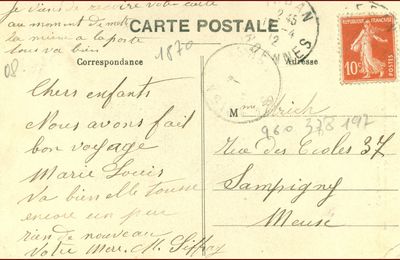 Je viens de recevoir votre carte
au moment de mettre
la mienne a la poste
tous va bien
CARTE POSTALE
Correspondance
Adresse
08
1870
2 45
12 - 4
10c
POSTES
Chers enfants
Nous avons fait
bon voyage
Marie Louis
va bien elle tousse
encore un peu
rien de nouveau
Votre Mère M.
Mme Ulrich
960 378 192
Rue des Ecoles 37
Sampigny
Meuse